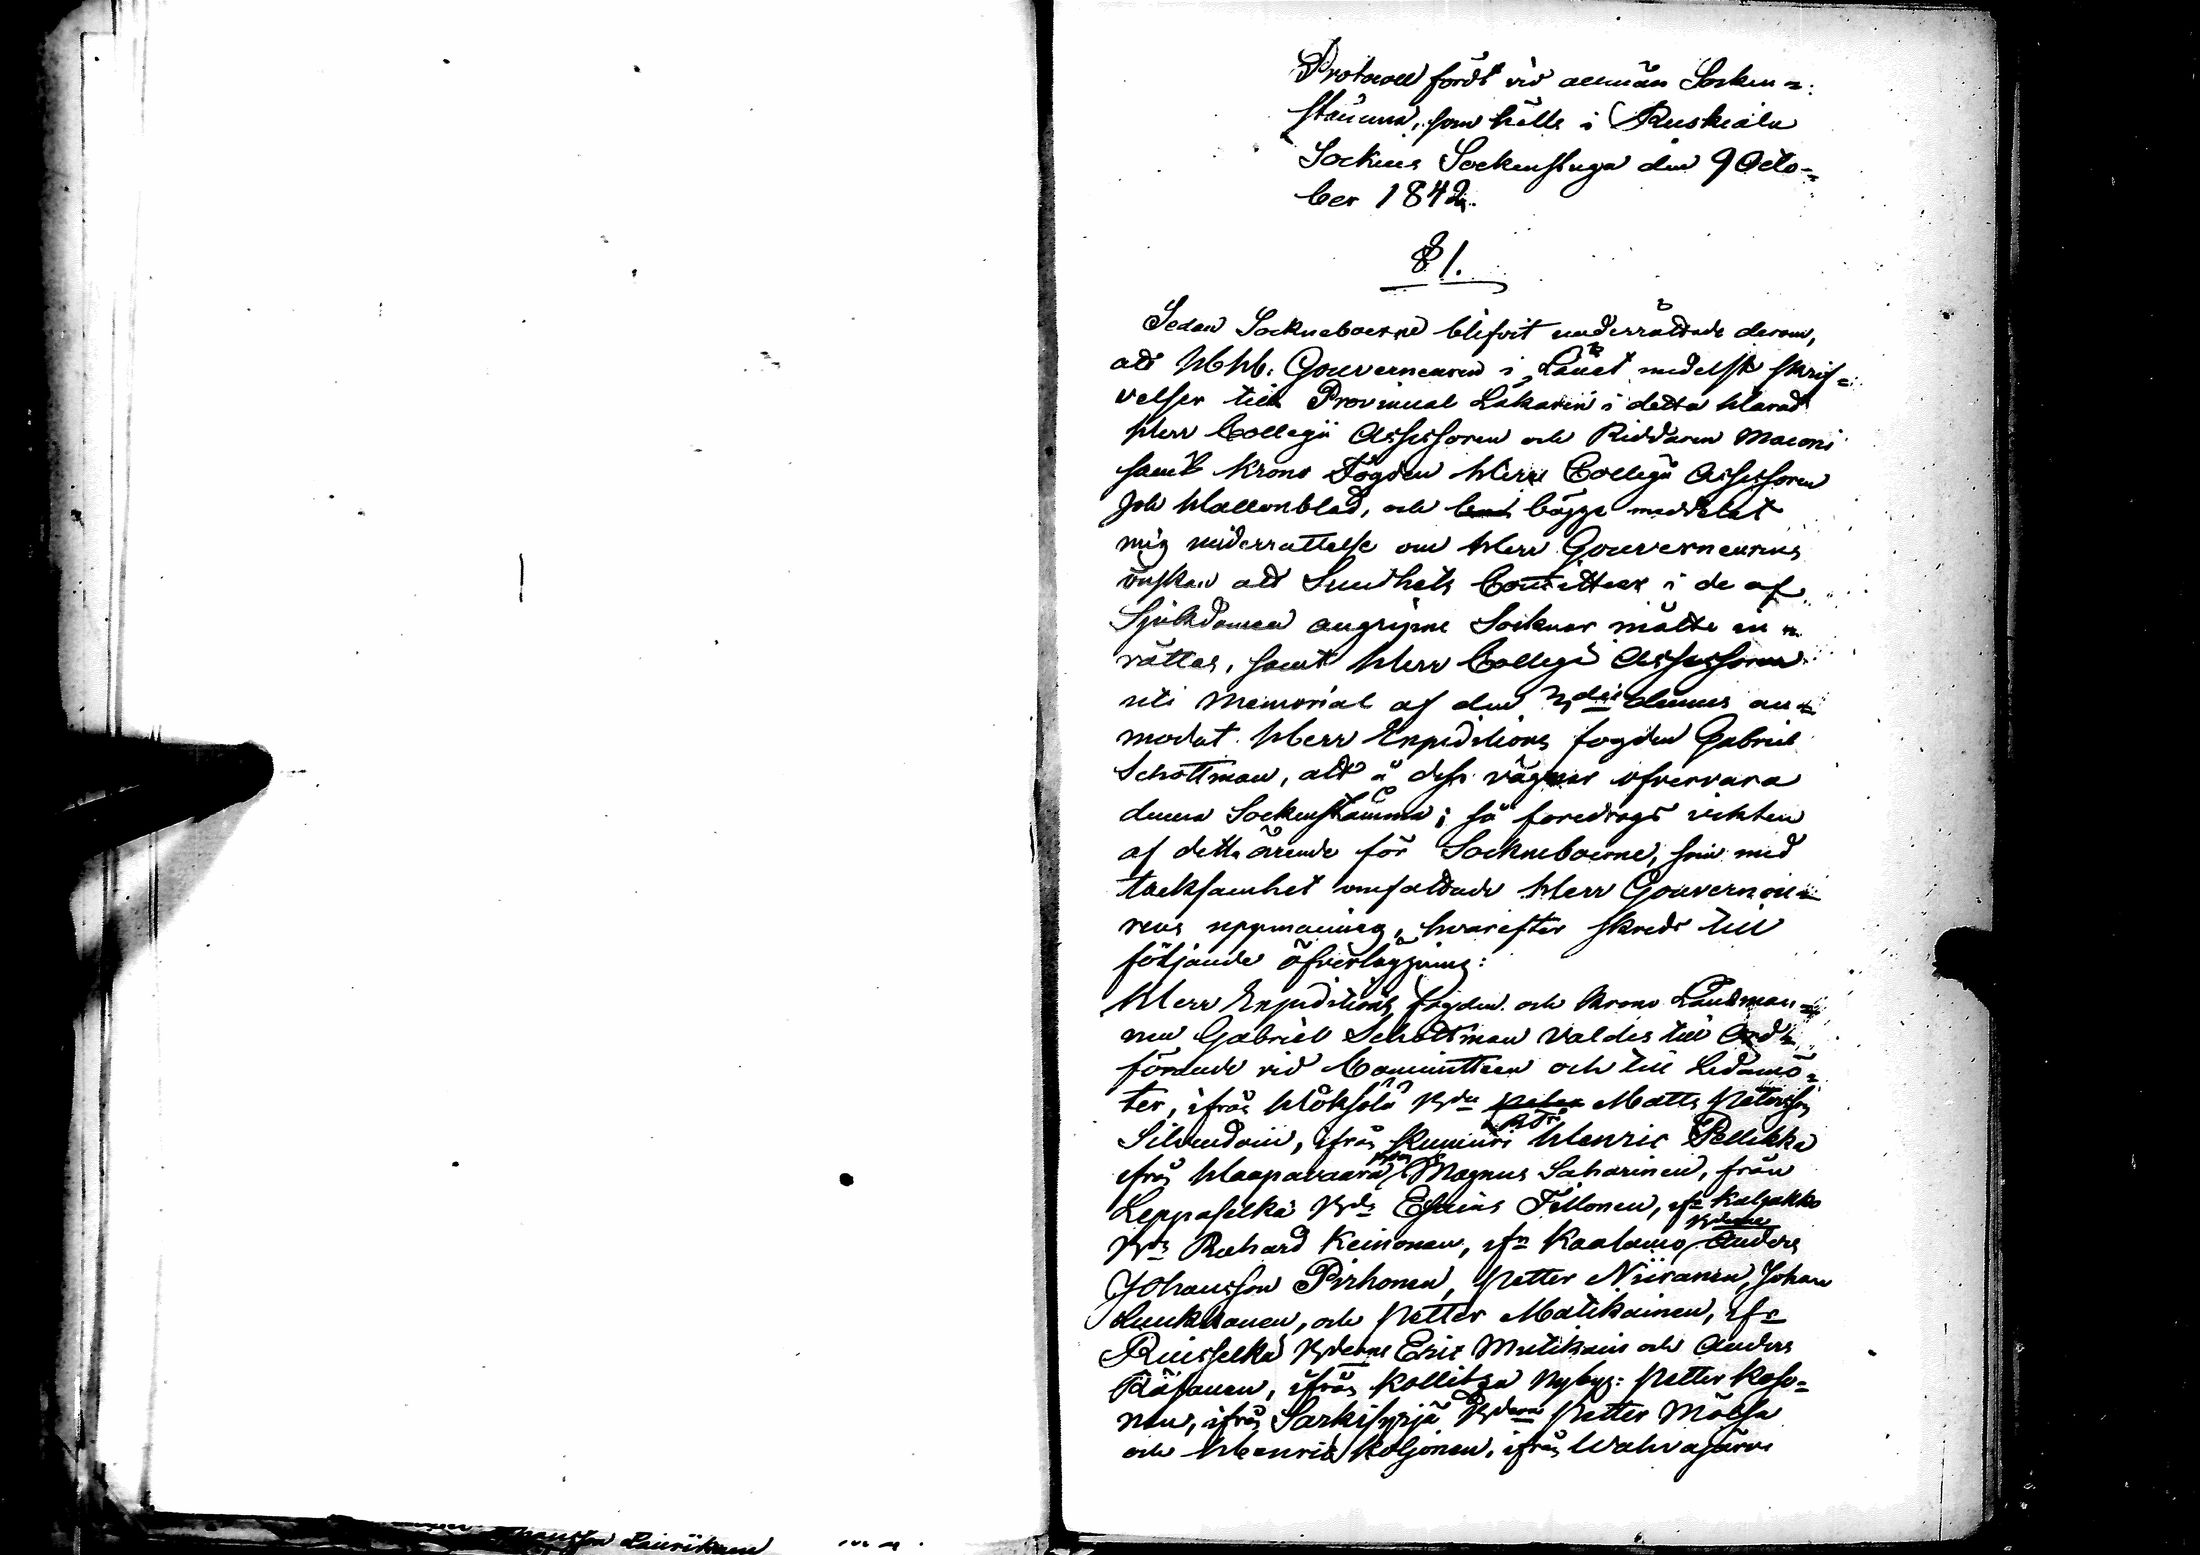 Protocoll fördt vid allmän Socken=
stämma, som hölls i Ruskiala
Sockens Sockenstuga den 9 Octo=
ber 1842.
§ 1.
Sedan Sockneboerne blifvit underrättade derom,
att H. Gouverneuren i Länet medelst skrif=
velser till Provincial Läkaren i detta Härad
Herr Collegii Assessoren och Riddaren Maconi
samt Krono Fogden Herr Collegii Assessoren
Joh Hallonblad, och bägge meddelat
mig underrättelse om Herr Gouverneurens
önskan att Sundhets Comitteer i de af
Sjukdomen angripne Socknar måtte in=
rättas, samt Herr Collegii Assessoren
uti Memorial af den 3die dennes an=
modat Herr Expeditions fogden Gabriel
Schottman, att å dess vägnar öfvervara
denna Sockenstämma; så foredrogs vikten
af detta ärende för Sockneboerne, som med
tacksamhet omfattade Herr Gouverneu=
rens uppmaning, hvarefter skreds till
följande öfverläggning:
Herr Expeditions fogden och Krono Länsman=
nen Gabriel Schottman valdes till Ord=
förande vid Committeen och till Ledamö=
ter, ifrån Höksölä Bdn Matts Petersson
Silvendoin, ifrån Kumuri Henric Pellikka
ifrån Haapavaara Magnus Saharinen, från
Leppäselkä Bdn Esaias Tillonen, ifn Kalpakko
Bdn Richard Keinonen, ifn Kaalamo Bderne Anders
Johansson Pirhonen, Petter Niiranen, Johan
Luukkonen, och Petter Matikainen, ifn
Ruisselkä Bderne Eric Mutikain och Anders
Räsänen, ifrån Kollitza Nybyg: Petter Koso=
nen, ifrån Särkisyrjä Bderne Petter Mölsä
och Henric Koljonen, ifrån Wahvajärvi